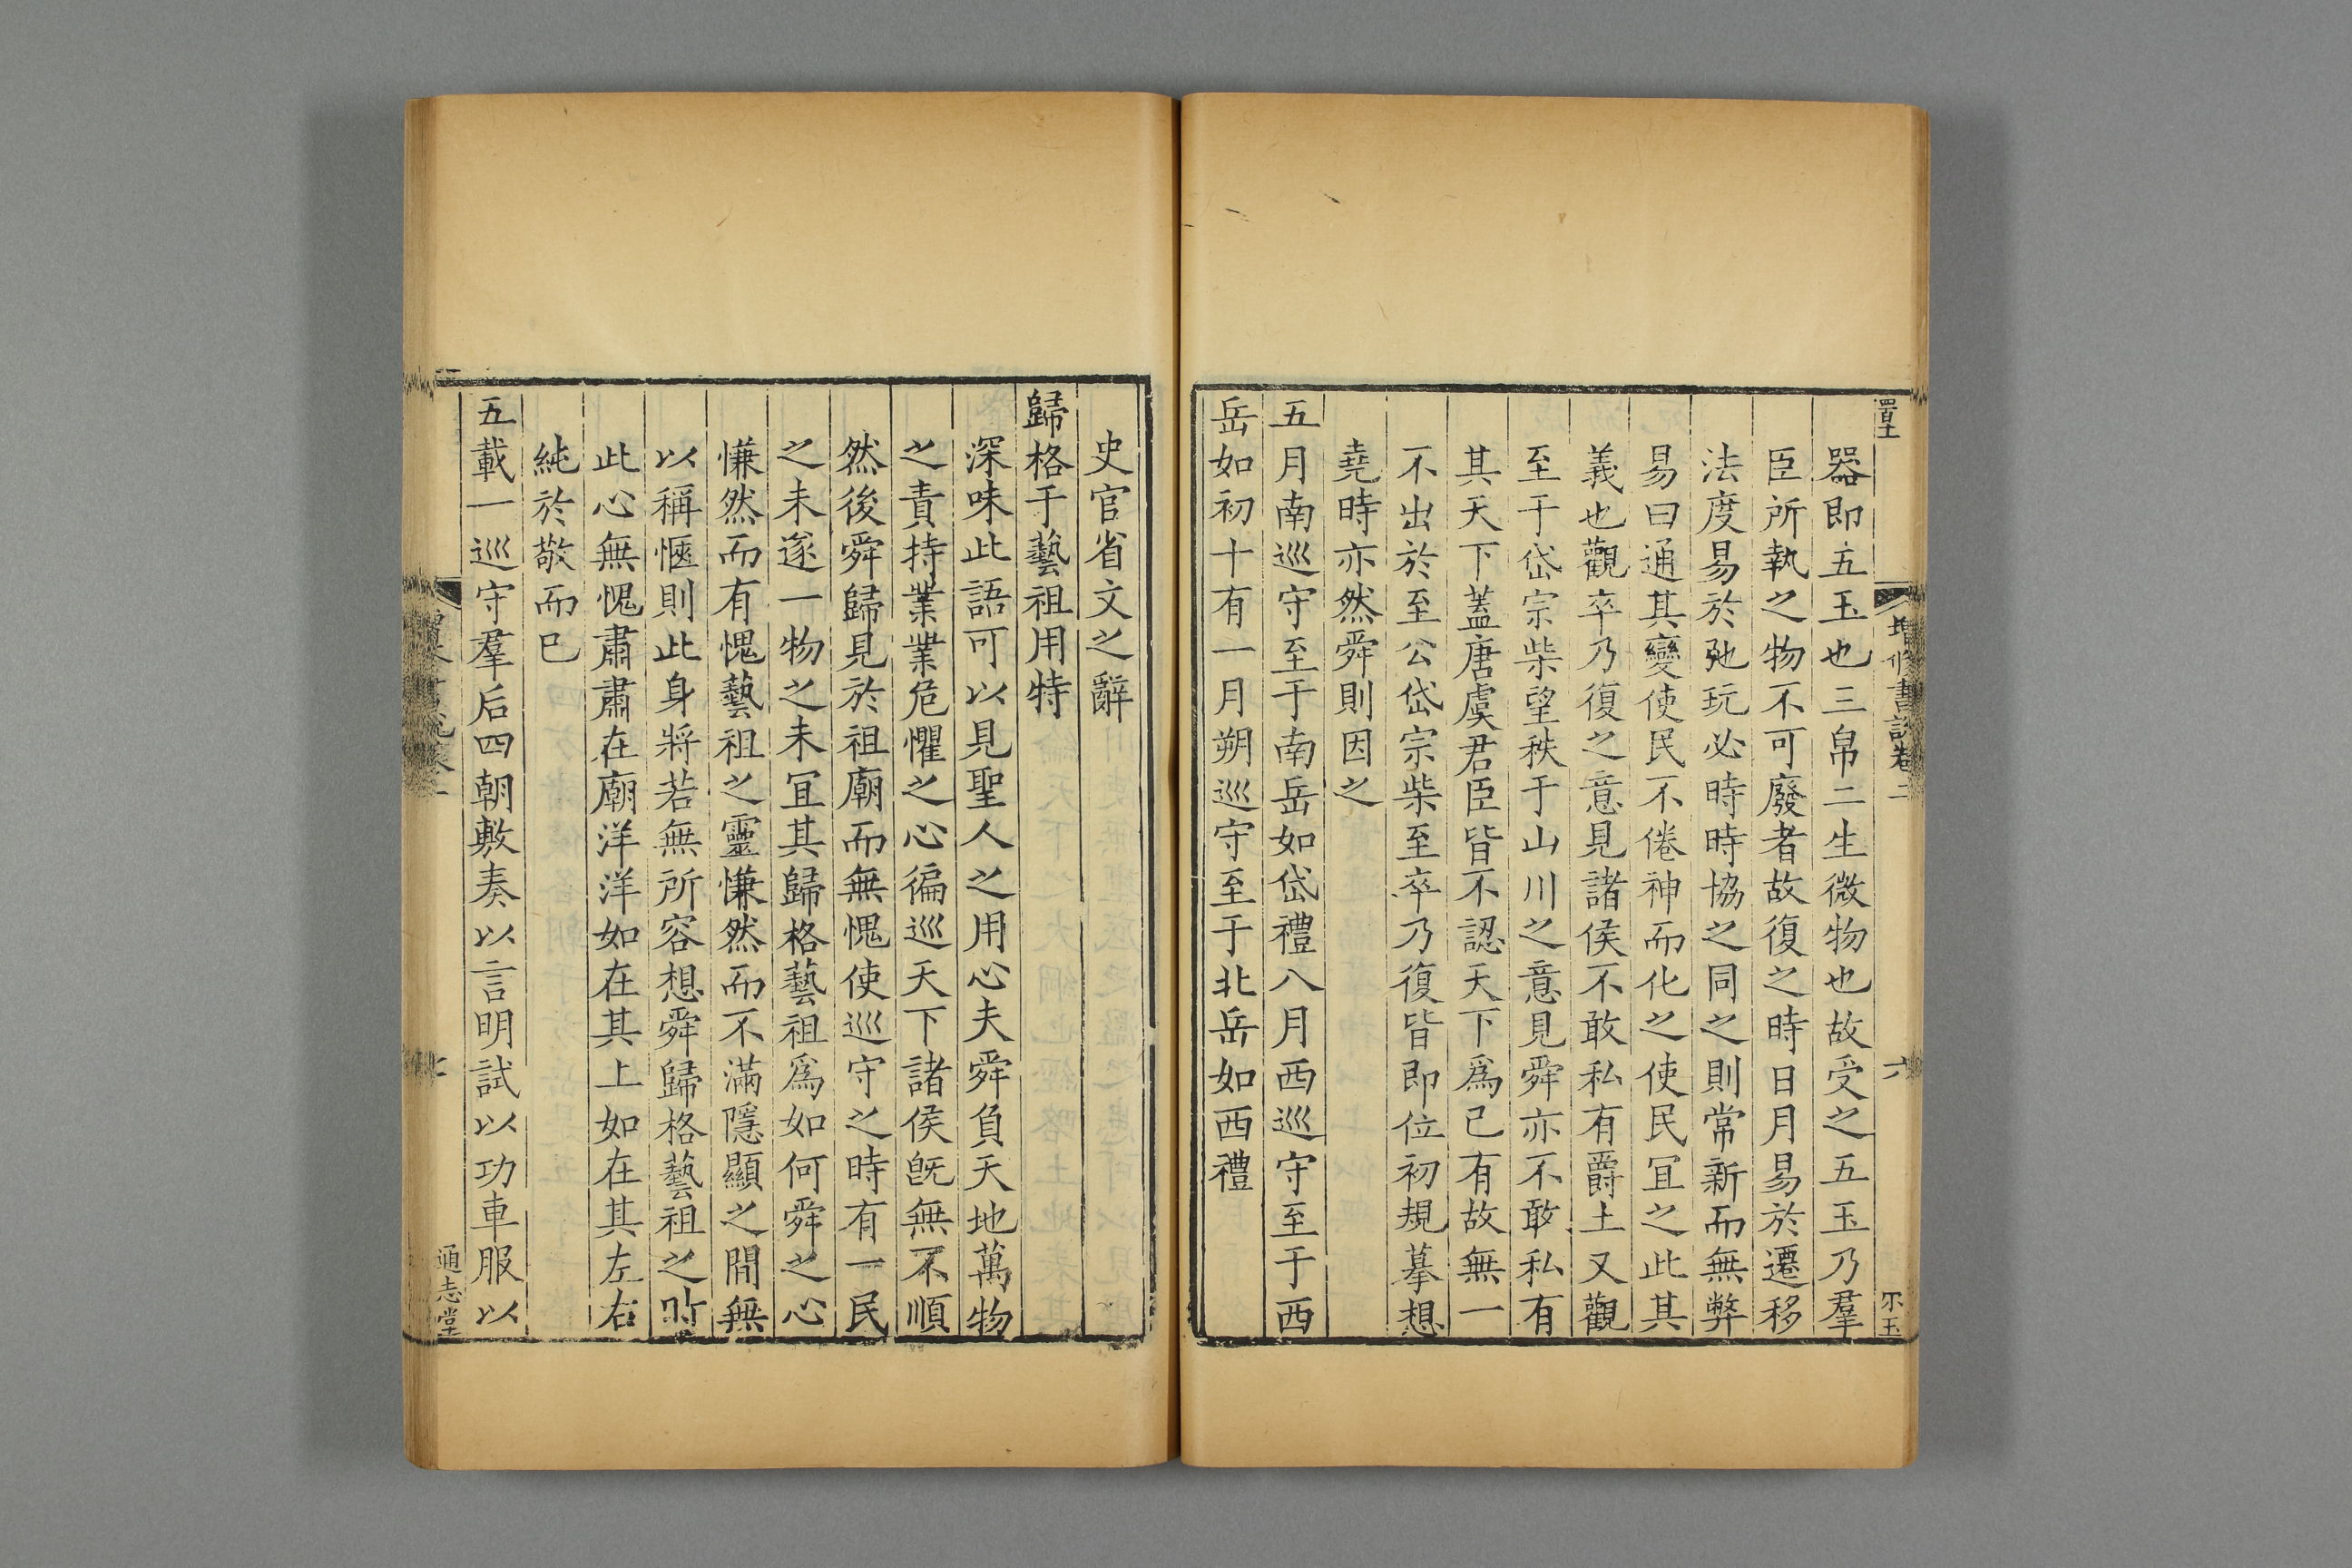 增修書說卷二
六
器即五玉也三帛二生微物也故受之五玉乃羣
臣所執之物不可廢者故復之時日月易於遷移
法度易於弛玩必時時協之同之則常新而無弊
易曰通其變使民不倦神而化之使民冝之此其
義也觀卒乃復之意見諸侯不敢私有爵土又觀
至于岱宗柴望秩于山川之意見舜亦不敢私有
其天下蓋唐虞君臣皆不認天下爲己有故無一
不出於至公岱宗柴至卒乃復皆即位初規摹想
堯時亦然舜則因之
五月南巡守至于南岳如岱禮八月西巡守至于西
岳如初十有一月朔巡守至于北岳如西禮
史官省文之辭
歸格于藝祖用特
深味此語可以見聖人之用心夫舜負天地萬物
之責持業業危懼之心徧巡天下諸侯旣無不順
然後舜歸見於祖廟而無愧使巡守之時有一民
之未遂一物之未冝其歸格藝祖爲如何舜之心
慊然而有愧藝祖之靈慊然而不滿隱顯之間無
以稱愜則此身將若無所容想舜歸格藝祖之時
此心無愧肅肅在廟洋洋如在其上如在其左右
純於敬而已
五載一巡守羣后四朝敷奏以言明試以功車服以
通志堂